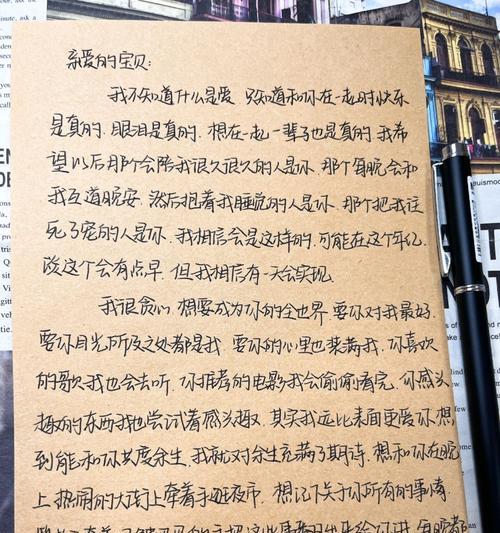 亲爱的宝贝:
我不知道什么是爱 只知道和你在一起时快乐
是真的, 眼泪是真的, 想在一起一辈子也是真的, 我希
望以后那个会陪我很久很久的人是你, 那个每晚会和
我互道晚安, 然后抱着我睡觉的人是你, 那个把我往
死了宠的人是你, 我相信会是这样的, 可能在这个年纪
说这个会有点早, 但我相信有一天会实现,
我很贪心, 想要成为你的全世界 要你对我最好,
要你目光所及之处都是我 要你的心里也装满我, 你喜欢
的歌我也会去听, 你推荐的电影我会偷偷看完, 你感兴
趣的东西我也尝试着感兴趣, 其实我远比表面更爱你, 想
到能和你共度余生, 我就对余生充满了期待, 想和你在晚
上热闹的大街上牵着手逛夜市, 想记下关于你所有的事情,